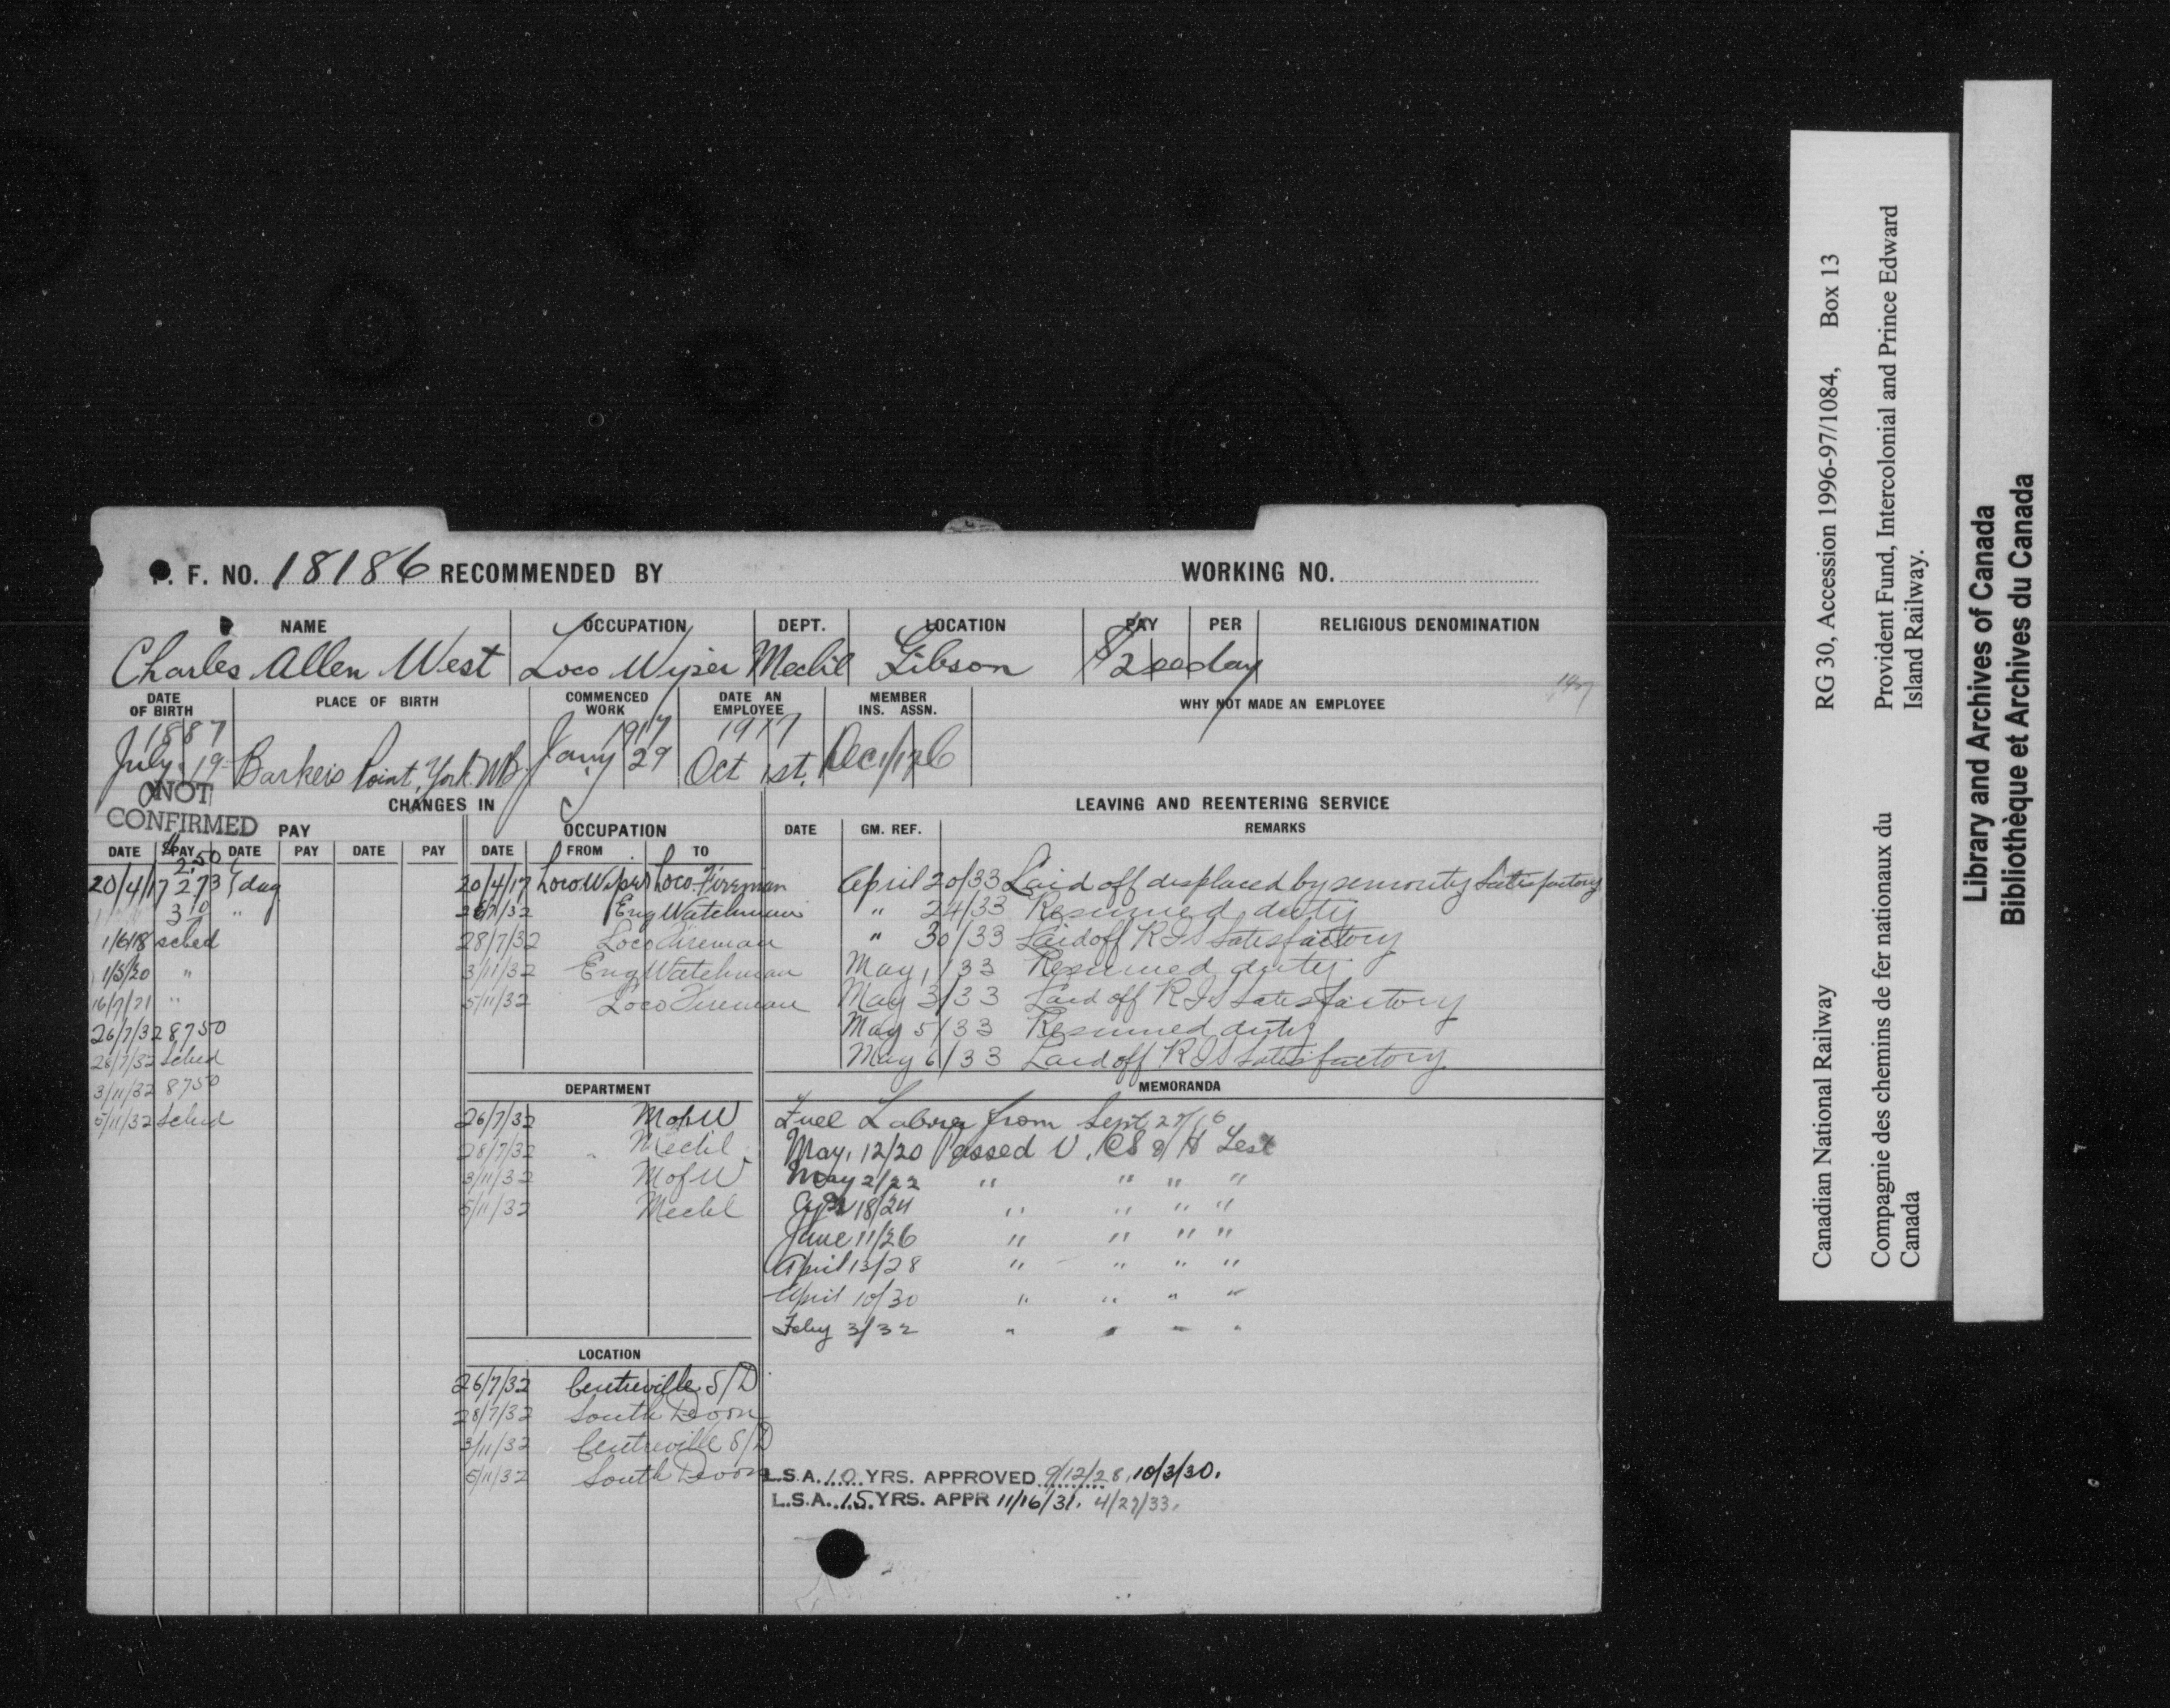 P. F. NO. 18186 RECOMMENDED BY WORKING NO.
NAME OCCUPATION DEPT. LOCATION PAY PER RELIGIOUS DENOMINATION
Charles Allen West Loco Wiper Mechl Gibson $2 00 day
DATE OF BIRTH PLACE OF BIRTH COMMENCED WORK DATE AN EMPLOYEE MEMBER INS. ASSN. WHY NOT MADE AN EMPLOYEE
1887 1917 1917
July 19 Barkers Point, York. NB. Jany 29 Oct 1st. Dec 1/26
NOT CONFIRMED
CHANGES IN
PAY
DATE PAY DATE PAY DATE PAY
$ 2.50
20/4/17 2 73 day
3 10 "
1/6/18 sched
1/5/20 "
16/7/21 "
26/7/32 87 50
28/7/32 sched
3/11/32 87 50
5/11/32 sched
OCCUPATION
DATE FROM TO
20/4/17 Loco Wiper Loco. Fireman
26/7/32 Eng Watchman
28/7/32 Loco Fireman
3/11/32 Eng Watchman
5/11/32 Loco Fireman
DEPARTMENT
26/7/32 M of W
28/7/32 Mechl
3/11/32 M of W
5/11/32 Mechl
LOCATION
26/7/32 Centreville S/D
28/7/32 South Devon
3/11/32 Centreville S/D
5/11/32 South Devon
LEAVING AND REENTERING SERVICE
DATE GM. REF. REMARKS
April 20/33 Laid off displaced by seniority Satisfactory
" 24/33 Resumed duty
" 30/33 Laid off R I S Satisfactory
May 1/33 Resumed duty
May 3/33 Laid off R I S Satisfactory
May 5/33 Resumed duty
May 6/33 Laid off R I S Satisfactory
MEMORANDA
Fuel Laborer from Sept 27/16
May. 12/20 Passed V. CS & H Test
May 2/22 " " " "
Apr 18/24 " " " "
June 11/26 " " " "
April 13/28 " " " "
April 10/30 " " " "
Feby 3/32 " " " "
L.S.A. 10 YRS. APPROVED 9/12/28, 10/3/30.
L.S.A. 15 YRS. APPR 11/16/31. 4/27/33.
Canadian National Railway RG 30, Accession 1996-97/1084, Box 13
Compagnie des chemins de fer nationaux du Canada
Provident Fund, Intercolonial and Prince Edward Island Railway.
Library and Archives of Canada
Bibliothèque et Archives du Canada